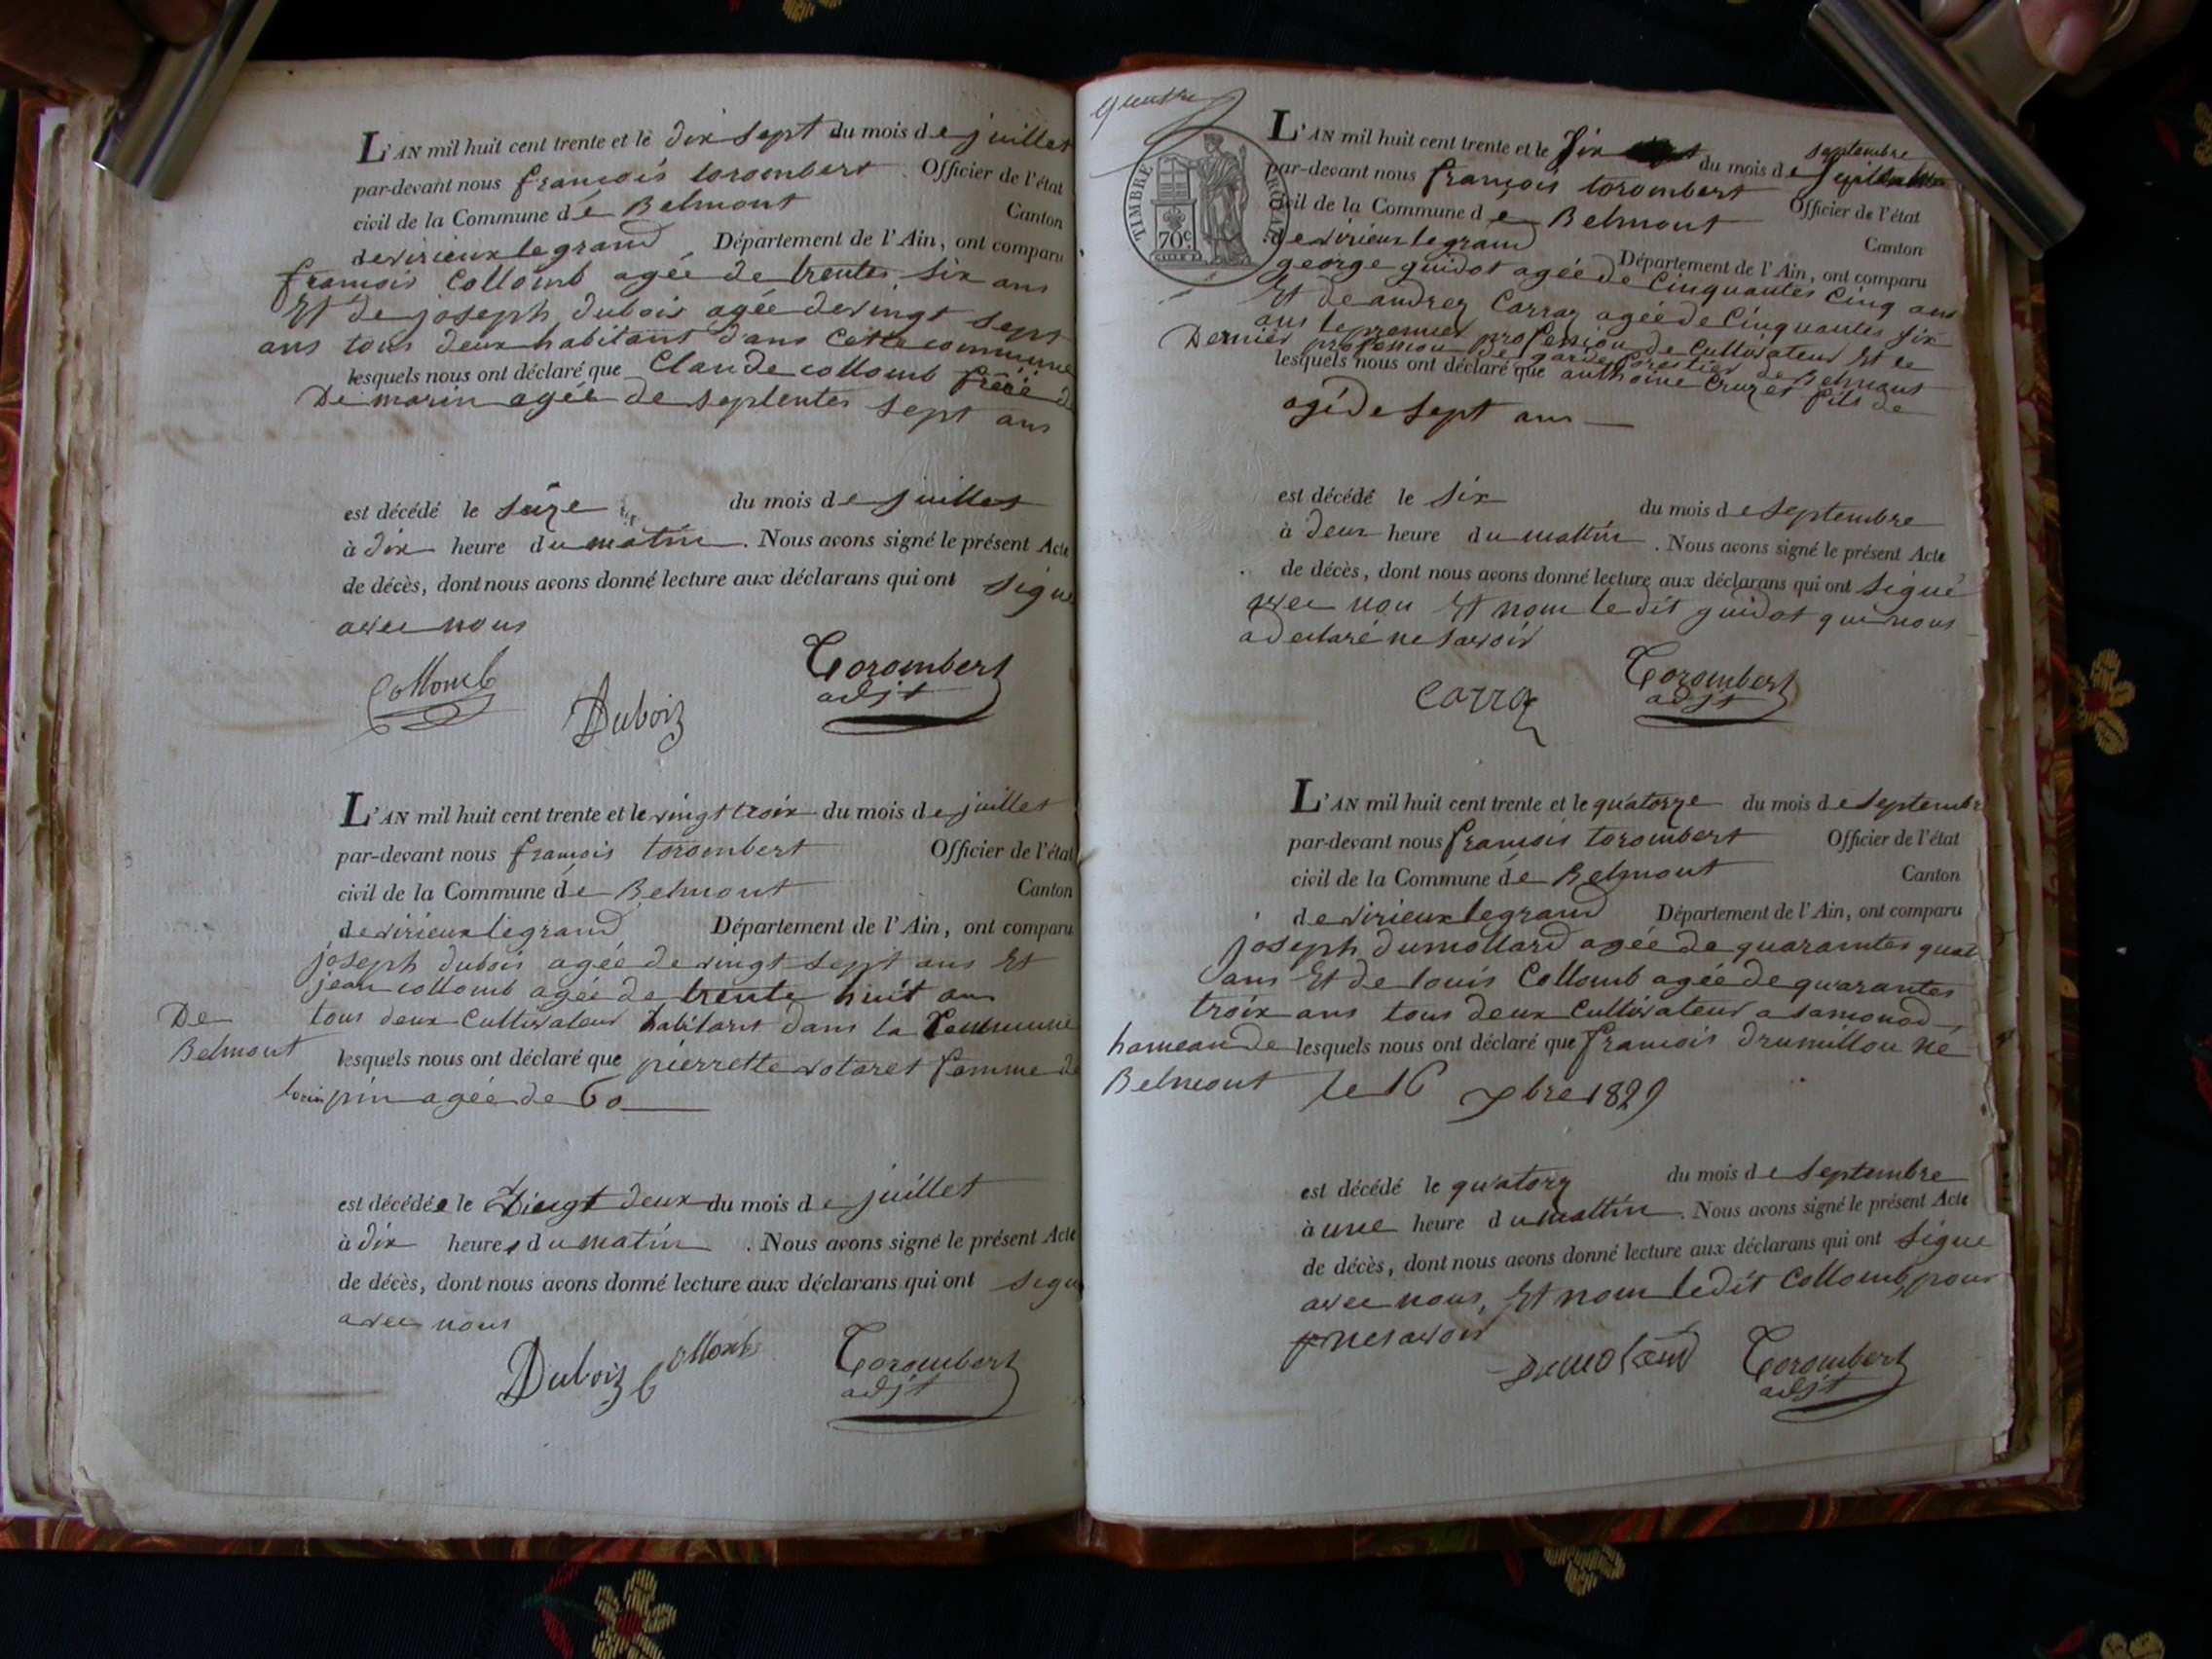 L'AN mil huit cent trente et le dix sept du mois de juillet
par-devant nous françois torombert Officier de l'état
civil de la Commune dé Belmont Canton
de virieux le grand Département de l'Ain, ont comparu
françois Collomb agée de trentes six ans
Et de joseph dubois agée de vingt sept
ans tous deux habitant dans Cette commune
lesquels nous ont déclaré que Claude collomb
De marin agée de septentes sept ans
est décédé le seize du mois de juillet
à dix heure du matin. Nous avons signé le présent Acte
de décès, dont nous avons donné lecture aux déclarans qui ont signé
avec nous
Collomb Dubois Torombert
adjt
L'AN mil huit cent trente et le vingt troix du mois de juillet
par-devant nous françois torombert Officier de l'état
civil de la Commune dé Belmont Canton
de virieux legrand Département de l'Ain, ont comparu
joseph dubois agée de vingt sept ans Et
jean collomb agée de trente huit ans
tous deux Cultivateur habitant dans la Commune
De
Belmont
lesquels nous ont déclaré que pierrette votaret famme de
pin agée de 60
est décédée le Vingt deux du mois de juillet
à dix heures du matin. Nous avons signé le présent Acte
de décès, dont nous avons donné lecture aux déclarans qui ont signé
avec nous
Dubois Collomb Torombert
adjt
quatre
TIMBRE ROYAL
70c
L'AN mil huit cent trente et le Six du mois de septembre
par-devant nous françois torombert Officier de l'état
civil de la Commune dé Belmont Canton
de virieux legrand Département de l'Ain, ont comparu
george guidot agée de Cinquantes Cinq ans
Et de andrez Carraz agée de Cinquantes six
ans le premier profession de Cultivateur Et le
Dernier profession de garde forestier de Belmont
lesquels nous ont déclaré que anthoine Cruzet fils de
agé de sept ans
est décédé le six du mois de septembre
à deux heure du mattin. Nous avons signé le présent Acte
de décès, dont nous avons donné lecture aux déclarans qui ont signé
avec nou Et nom le dit guidot qui nous
a declaré ne savoir
Carraz Torombert
adjt
L'AN mil huit cent trente et le quatorze du mois de septembre
par-devant nous françois torombert Officier de l'état
civil de la Commune dé Belmont Canton
de virieux legrand Département de l'Ain, ont comparu
joseph dumollard agée de quaramtes quat
ans Et de louis Collomb agée de quarantes
troix ans tous deux Cultivateur a samonod
hameau de
Belmont
lesquels nous ont déclaré que françois drumillou ne
le 16 xbre 1829
est décédé le quatorz du mois de septembre
à une heure du mattin. Nous avons signé le présent Acte
de décès, dont nous avons donné lecture aux déclarans qui ont signe
avec nous, Et nom ledit Collomb, pour
ne savoir
Dumolard Torombert
adjt